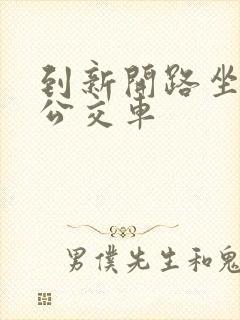 到新開路坐
公交車
男僕先生和鬼